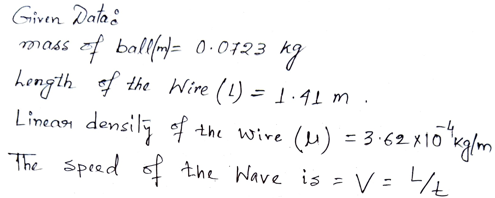 Given Data:
mass of ball(m)= 0.0723 kg
Length of the Wire (L) = 1.41 m .
Linear density of the wire (μ) = 3.62×10⁻⁴kg/m
The speed of the Wave is = V = L/t